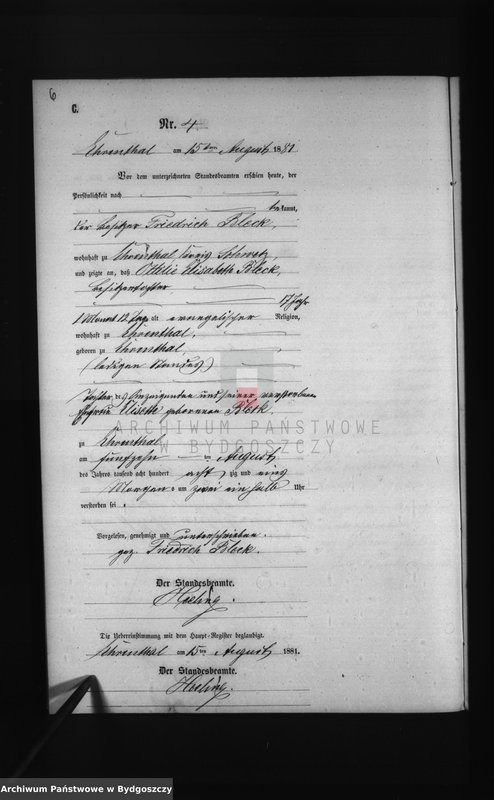 6
C.
Nr. 4
Ehrenthal am 15ten August 1881
Vor dem unterzeichneten Standesbeamten erschien heute, der
Persönlichkeit nach
bekannt,
der Besitzer Friedrich Bleck,
wohnhaft zu Ehrenthal Kreis Schwetz,
und zeigte an, daß Ottilie Elisabeth Bleck,
Besitzertochter
17 Jahr
1 Monat 12 Tage alt evangelischer Religion,
wohnhaft zu Ehrenthal,
geboren zu Ehrenthal,
(ledigen Standes)
Tochter des Anzeigenden und seiner verstorbenen
Ehefrau Elisette geborenen Bleck.
zu Ehrenthal
am fünfzehn ten August
des Jahres tausend acht hundert achtzig und eins
Morgens um zwei ein halb Uhr
verstorben sei.
Vorgelesen, genehmigt und unterschrieben.
gez. Friedrich Bleck.
Der Standesbeamte.
Die Uebereinstimmung mit dem Haupt-Register beglaubigt.
Ehrenthal am 15ten August 1881.
Der Standesbeamte.
ARCHIWUM PAŃSTWOWE
W BYDGOSZCZY
Archiwum Państwowe w Bydgoszczy